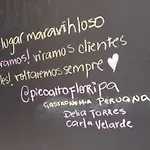 lugar maravilhoso
ramos! viramos clientes
voltaremos sempre
@picoaltofloripa
Gastronomia Peruana
Delia Torres
Carla Velarde